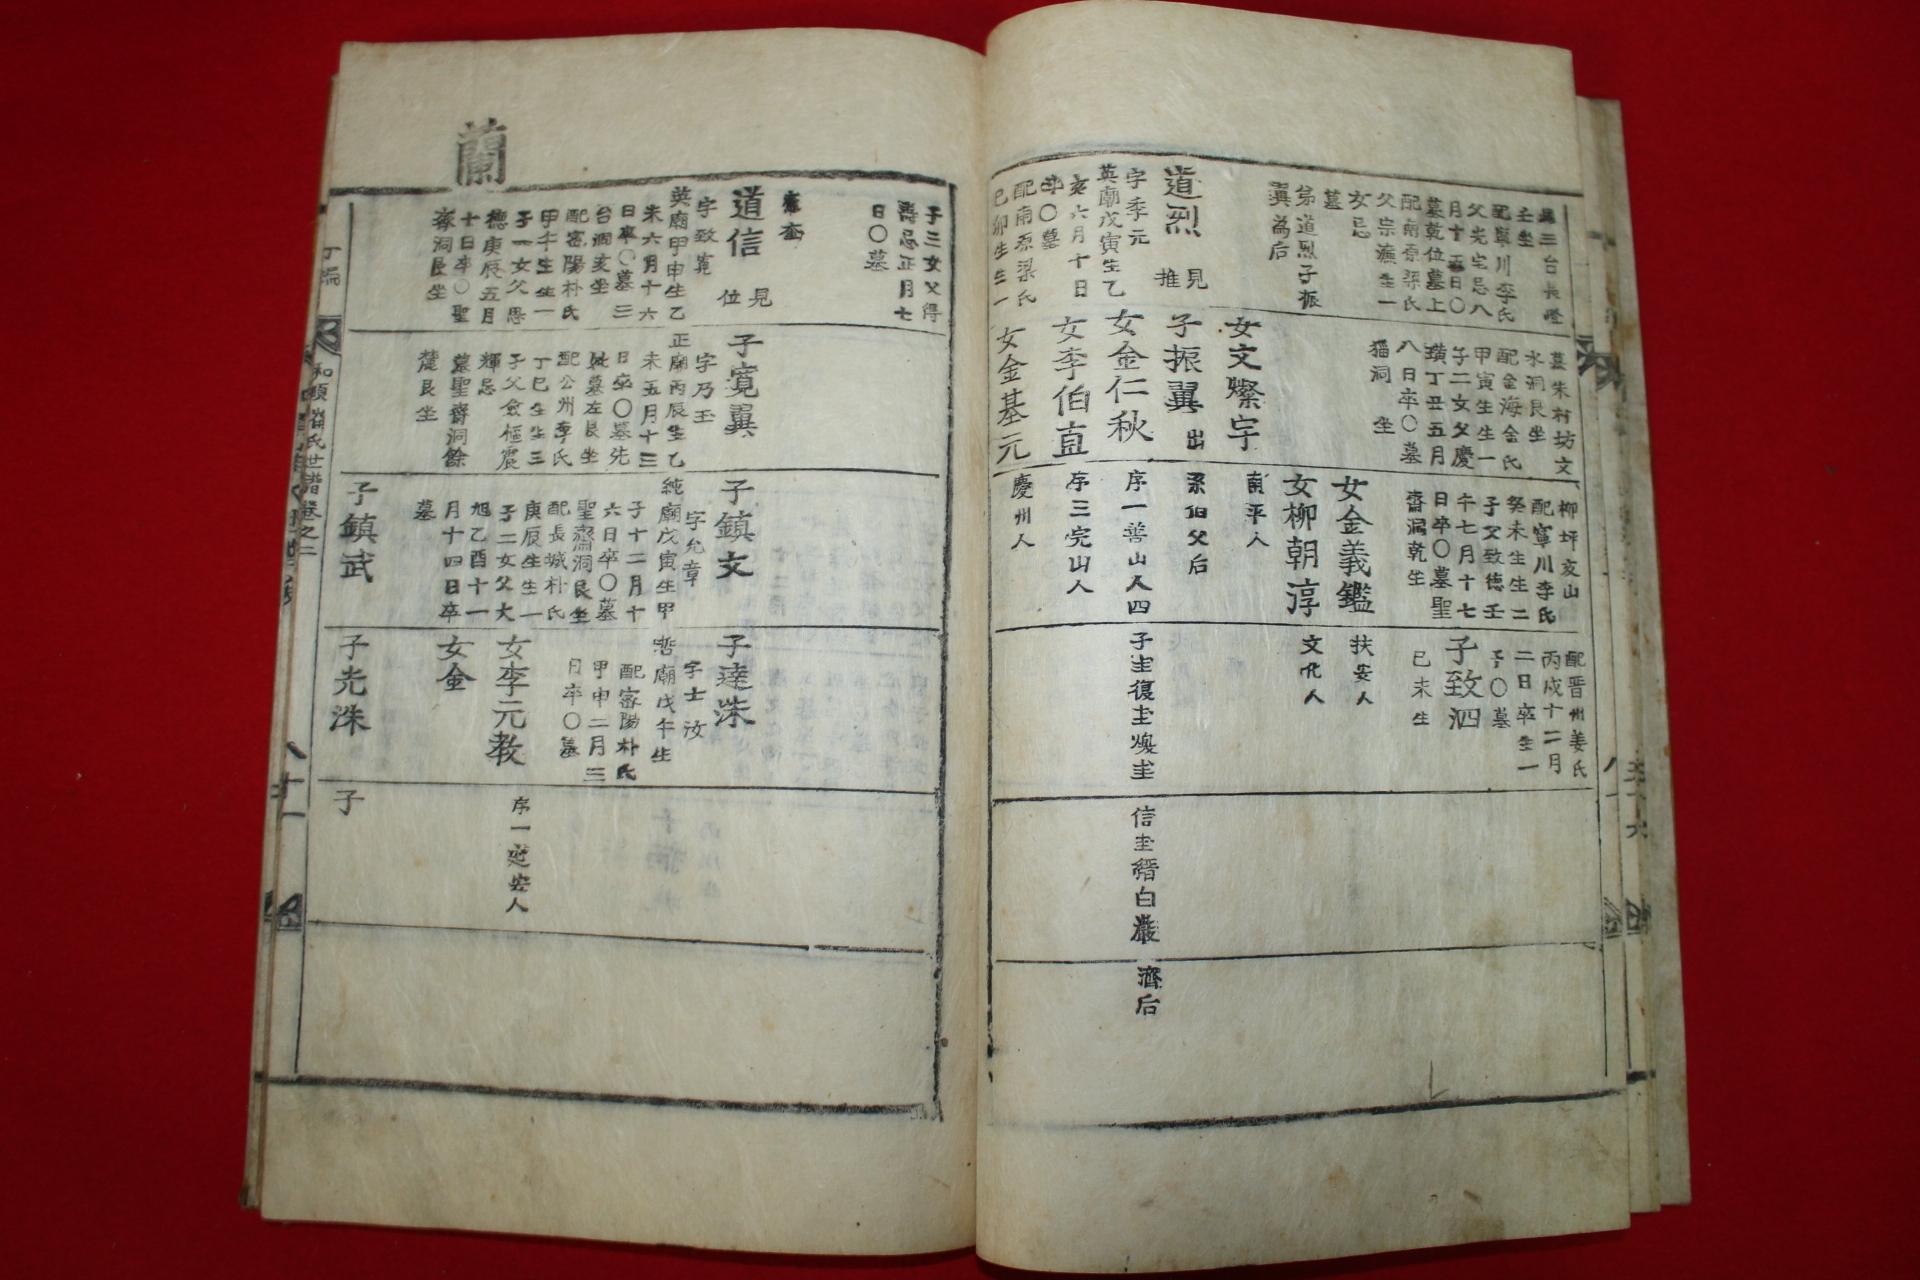 墓朱村坊文
水洞艮坐
配金海金氏
甲寅生生一
子二女父慶
璜丁丑五月
八日卒〇墓
猫洞 坐
柳坪亥山
配寧川李氏
癸未生生二
子父致德壬
午七月十七
日卒〇墓聖
齋洞乾坐
配晋州姜氏
丙戍十二月
二日卒生一
子〇墓
子致泗
己未生
壬坐
配寧川李氏
父光宅忌八
月十五日〇
墓乾位墓上
配南原梁氏
父宗濂生一
女忌
墓
弟道烈子振
翼為后
女金義鑑
扶安人
女柳朝淳
文化人
女文燦宇
南平人
道烈
見推
字季元
英廟戊寅生乙
亥六月十日
卒〇墓
配南原梁氏
己卯生生一
子振翼 出
系伯父后
女金仁秋
序一善山人四
子圭復圭煥圭
信圭縉白巖
濟后
女李伯直
序三完山人
女金基元
慶州人
蘭
子三女父得
濤忌正月七
日〇墓
道信
見位
字致寛
英廟甲申生乙
未六月十六
日卒〇墓三
台洞亥坐
配密陽朴氏
甲午生生一
子一女父思
德庚辰五月
十日卒〇聖
齋洞艮坐
子寛翼
字乃玉
正廟丙辰生乙
未五月十三
日卒〇墓先
墓左艮坐
配公州李氏
丁巳生生三
子父僉樞震
輝忌
墓聖齋洞餘
麓艮坐
子鎮文
字允章
純廟戊寅生甲
子十二月十
六日卒〇墓
聖齋洞艮坐
配長城朴氏
庚辰生生一
子二女父大
旭乙酉十一
月十四日卒
墓
子達洙
字士汝
哲廟戊午生
配密陽朴氏
甲申二月三
日卒〇墓
女李元教
序一延安人
女金
子鎮武
子光洙
子
和順崔氏世譜卷之二